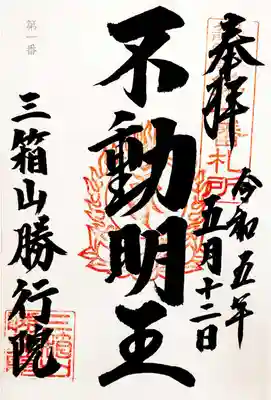 奉拝
令和五年
五月十二日
不動明王
三箱山勝行院
第一番